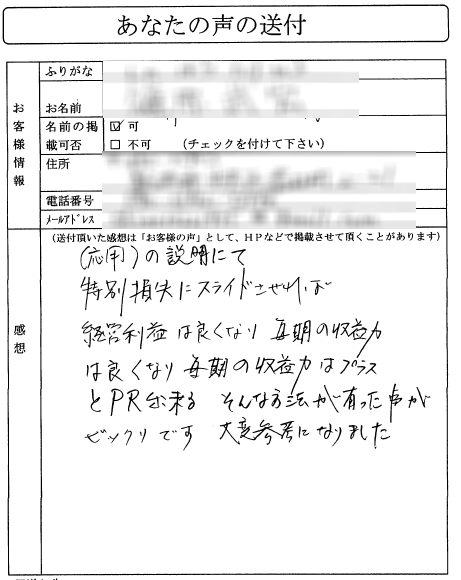 あなたの声の送付
お客様情報
ふりがな
お名前
名前の掲載可否
☑ 可
□ 不可 (チェックを付けて下さい)
住所
電話番号
メールアドレス
感想
(送付頂いた感想は「お客様の声」として、HPなどで掲載させて頂くことがあります)
(応用)の説明にて
特別損失にスライドさせれば
経営利益は良くなり 毎期の収益力
は良くなり 毎期の収益力はプラス
とPR出来る そんな方法が有った事が
ビックリです 大変参考になりました